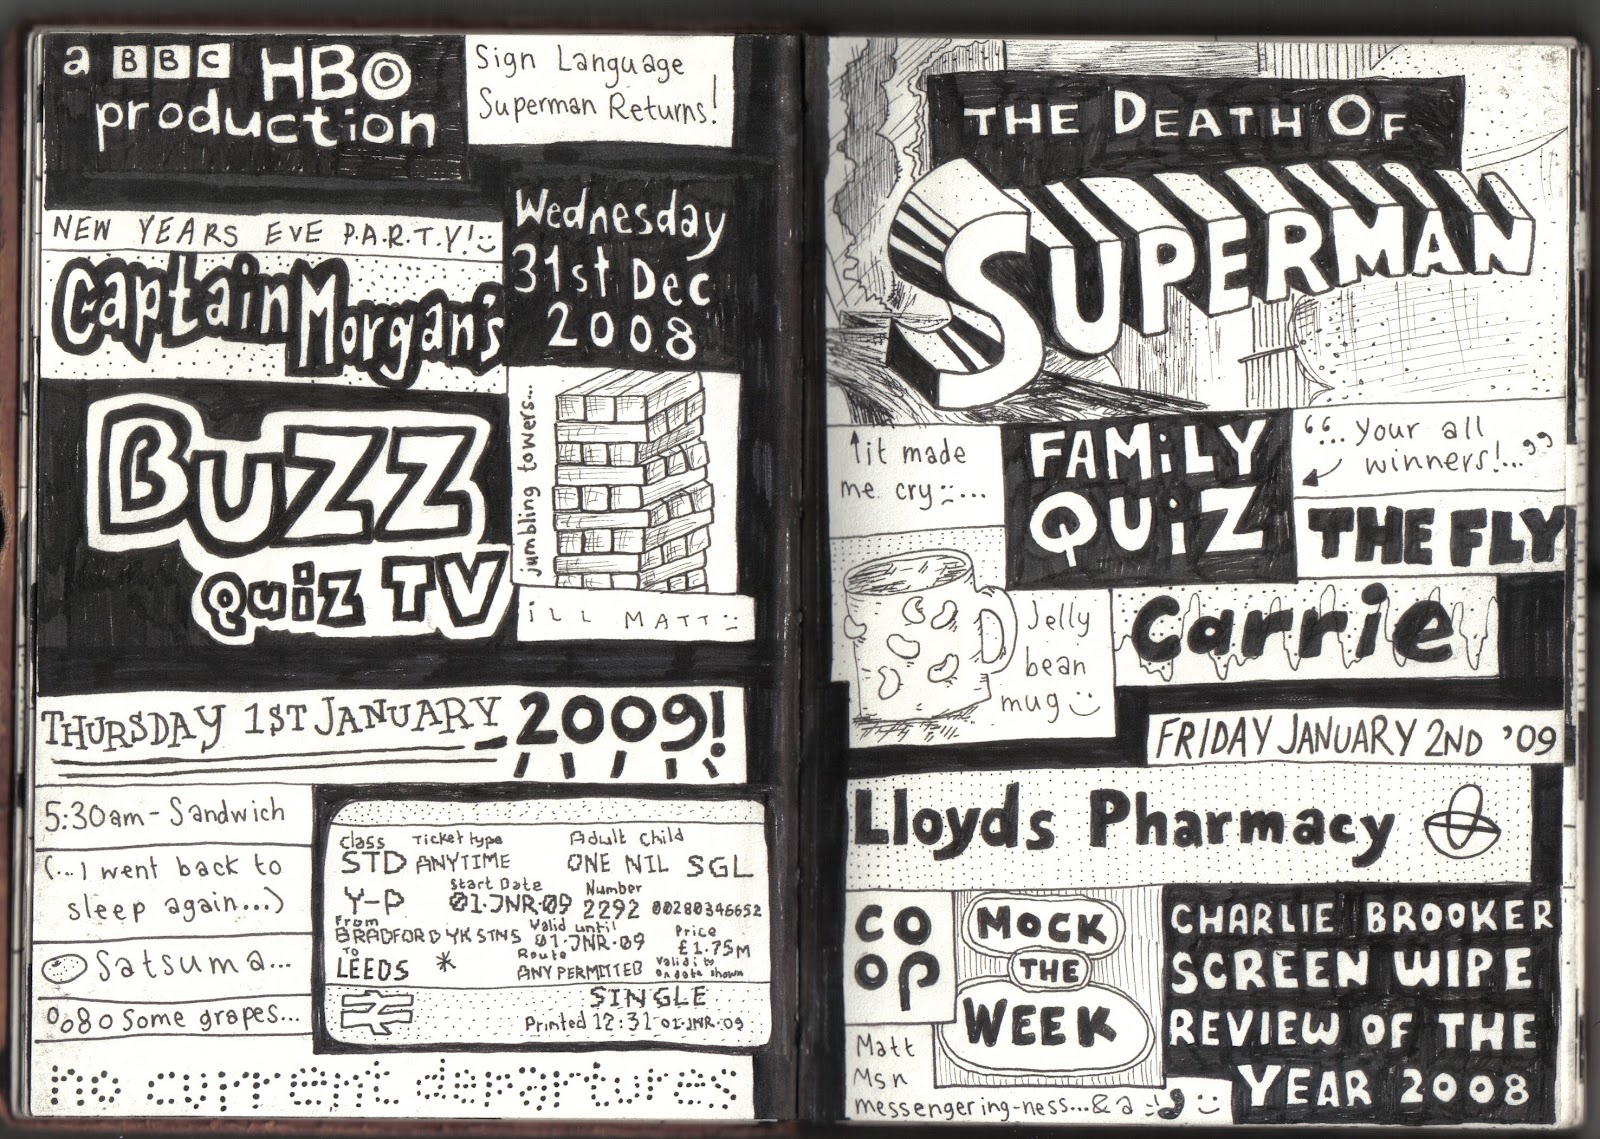 a BBC HBO
production
Sign Language
Superman Returns!
NEW YEARS EVE P.A.R.T.Y!
Captain Morgan's
Wednesday
31st Dec
2008
BUZZ
Quiz TV
jumbling towers...
iLL MATT
THURSDAY 1ST JANUARY 2009!
5:30am - Sandwich
(...I went back to
sleep again...)
Satsuma...
Some grapes...
Class Ticket type Adult Child
STD ANYTIME ONE NIL SGL
Start Date Number
Y-P 01·JNR·09 2292 00280346652
From Valid until Price
BRADFORD YK STNS 01·JNR·09 £1.75M
To Route Valid
LEEDS * ANY PERMITTED on date shown
SINGLE
Printed 12:31 01·JNR·09
no current departures
THE DEATH OF
SUPERMAN
it made
me cry...
FAMiLY
QUiZ
"...Your all
winners!..."
THE FLY
Jelly
bean
mug
Carrie
FRIDAY JANUARY 2ND '09
Lloyds Pharmacy
CO
OP
MOCK
THE
WEEK
CHARLIE BROOKER
SCREEN WIPE
REVIEW OF THE
YEAR 2008
Matt
Msn
messengering-ness...& a